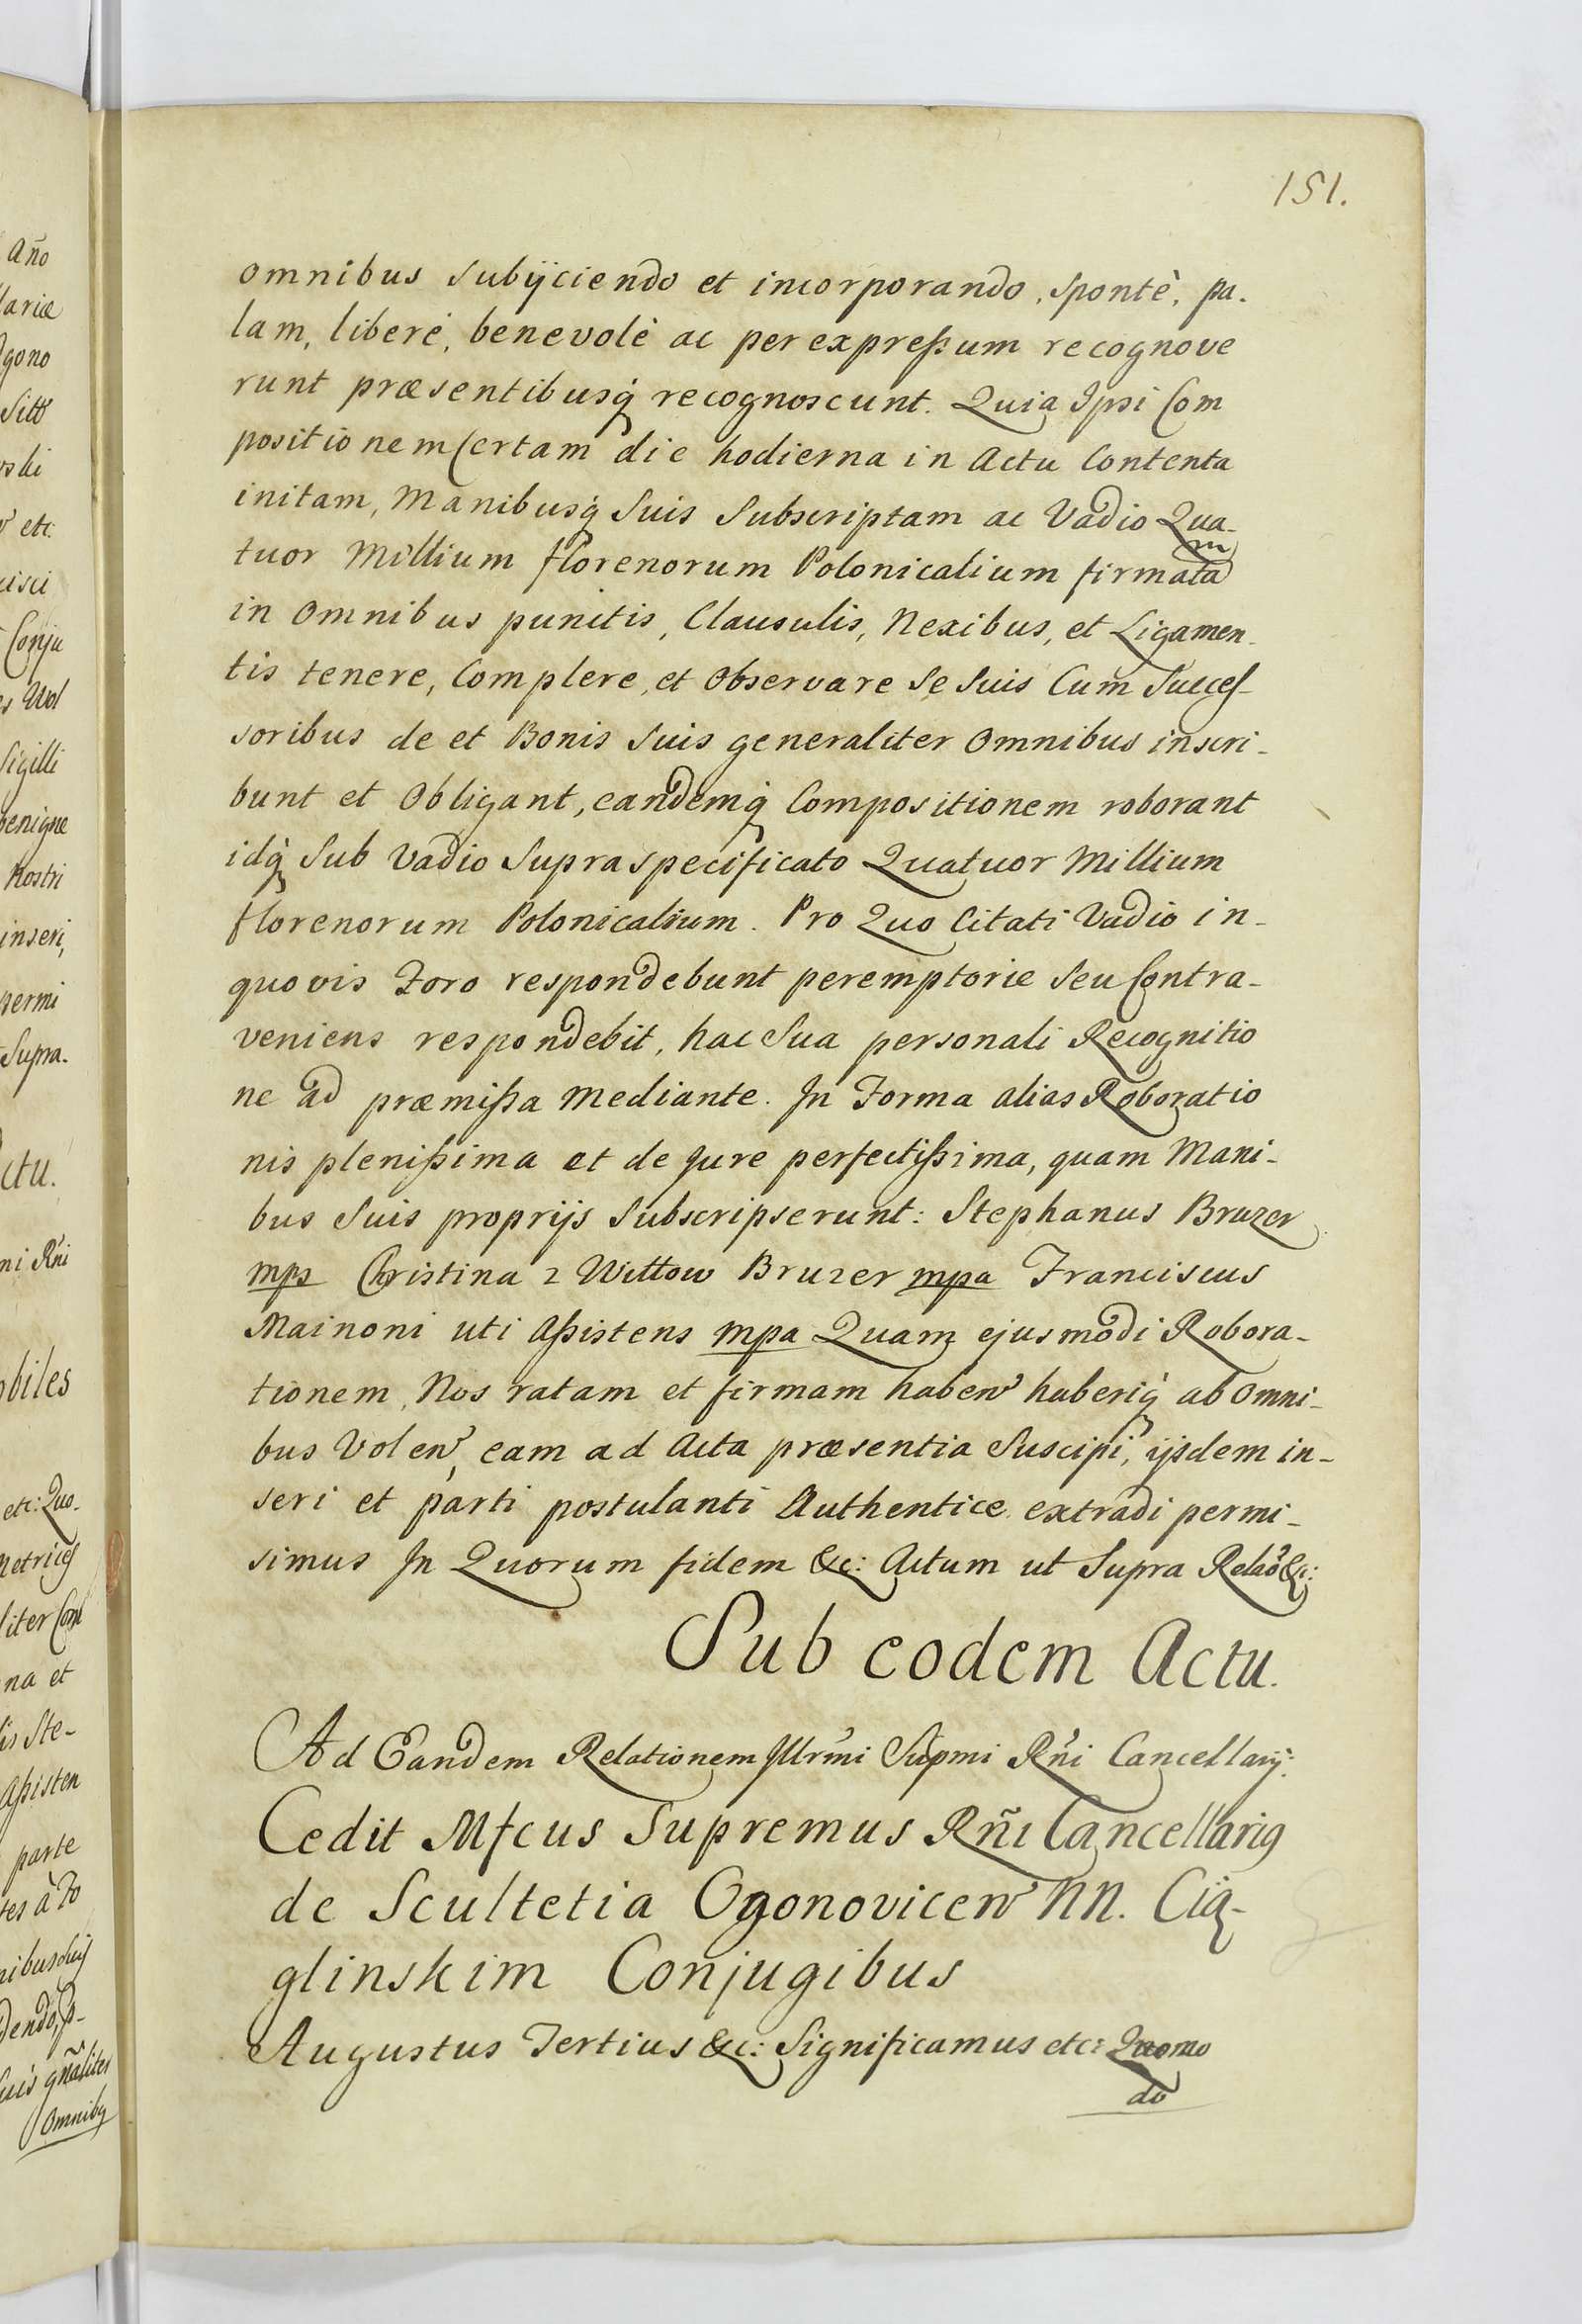 151.
omnibus subÿciendo et incorporando, spontè, pa-
lam, liberè, benevolè ac per expressum recognove
runt præsentibusq̨ recognoscunt. Quia Ipsi Com
positionem Certam die hodierna in Actu Contenta
initam, Manibusq̨ Suis Subscriptam ac Vadio Qua-
tuor Millium florenorum Polonicalium firmatam
in omnibus punctis, Clausulis, Nexibus, et Ligamen-
tis tenere, Complere, et Observare Se Suis Cum Succes-
soribus de et Bonis Suis generaliter Omnibus inscri-
bunt et Obligant, eandemq̨ Compositionem roborant
idq̨ Sub Vadio Supra specificato Quatuor Millium
florenorum Polonicalium. Pro Quo Citati Vadio in-
quovis Foro respondebunt peremptorie Seu Contra-
veniens respondebit, hac Sua personali Recognitio
ne ad præmissa Mediante. In Forma alias Roboratio
nis plenissima et de Jure perfectissima, quam Mani-
bus Suis proprijs Subscripserunt: Stephanus Bruzer
mpa Christina z Wittow Bruzer mpa Franciscus
Mainoni uti Assistens mpa Quam ejusmodi Robora-
tionem, Nos ratam et firmam haben' haberiq̨ ab Omni-
bus Volen', eam ad Acta præsentia Suscipi, ijsdem in-
seri et parti postulanti Authentice extradi permi-
simus In Quorum fidem &c: Actum ut Supra Relaõ &c:
Sub eodem Actu.
Ad Eandem Relationem Illr̃mi Supmi Rñi Cancellarij:
Cedit Mfcus Supremus Rñi Cancellarius
de Scultetia Ogonovicen' NN. Cią-
glinskim Conjugibus
Augustus Tertius &c: Significamus etc: Quomo
do
Año
lariæ
gono
etc:
Conju
Sigilli
benigne
Nostri
inseri,
permi
Supra.
ctu.
ni Rñi
obiles
etc: Quo-
na et
Ste-
Assisten
parte
Omnibus